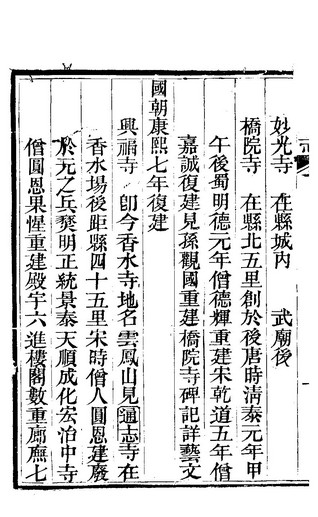 妙光寺　在縣城內　武廟後
橋院寺　在縣北五里創於後唐時淸泰元年甲
午後蜀明德元年僧德輝重建宋乾道五年僧
嘉誠復建見孫觀國重建橋院寺碑記詳藝文
國朝康熙七年復建
興福寺　卽今香水寺地名雲鳳山見通志寺在
香水場後距縣四十五里宋時僧人圓恩建廢
於元之兵燹明正統景泰天順成化宏治中寺
僧圓恩果惺重建殿宇六進樓閣數重廊廡七